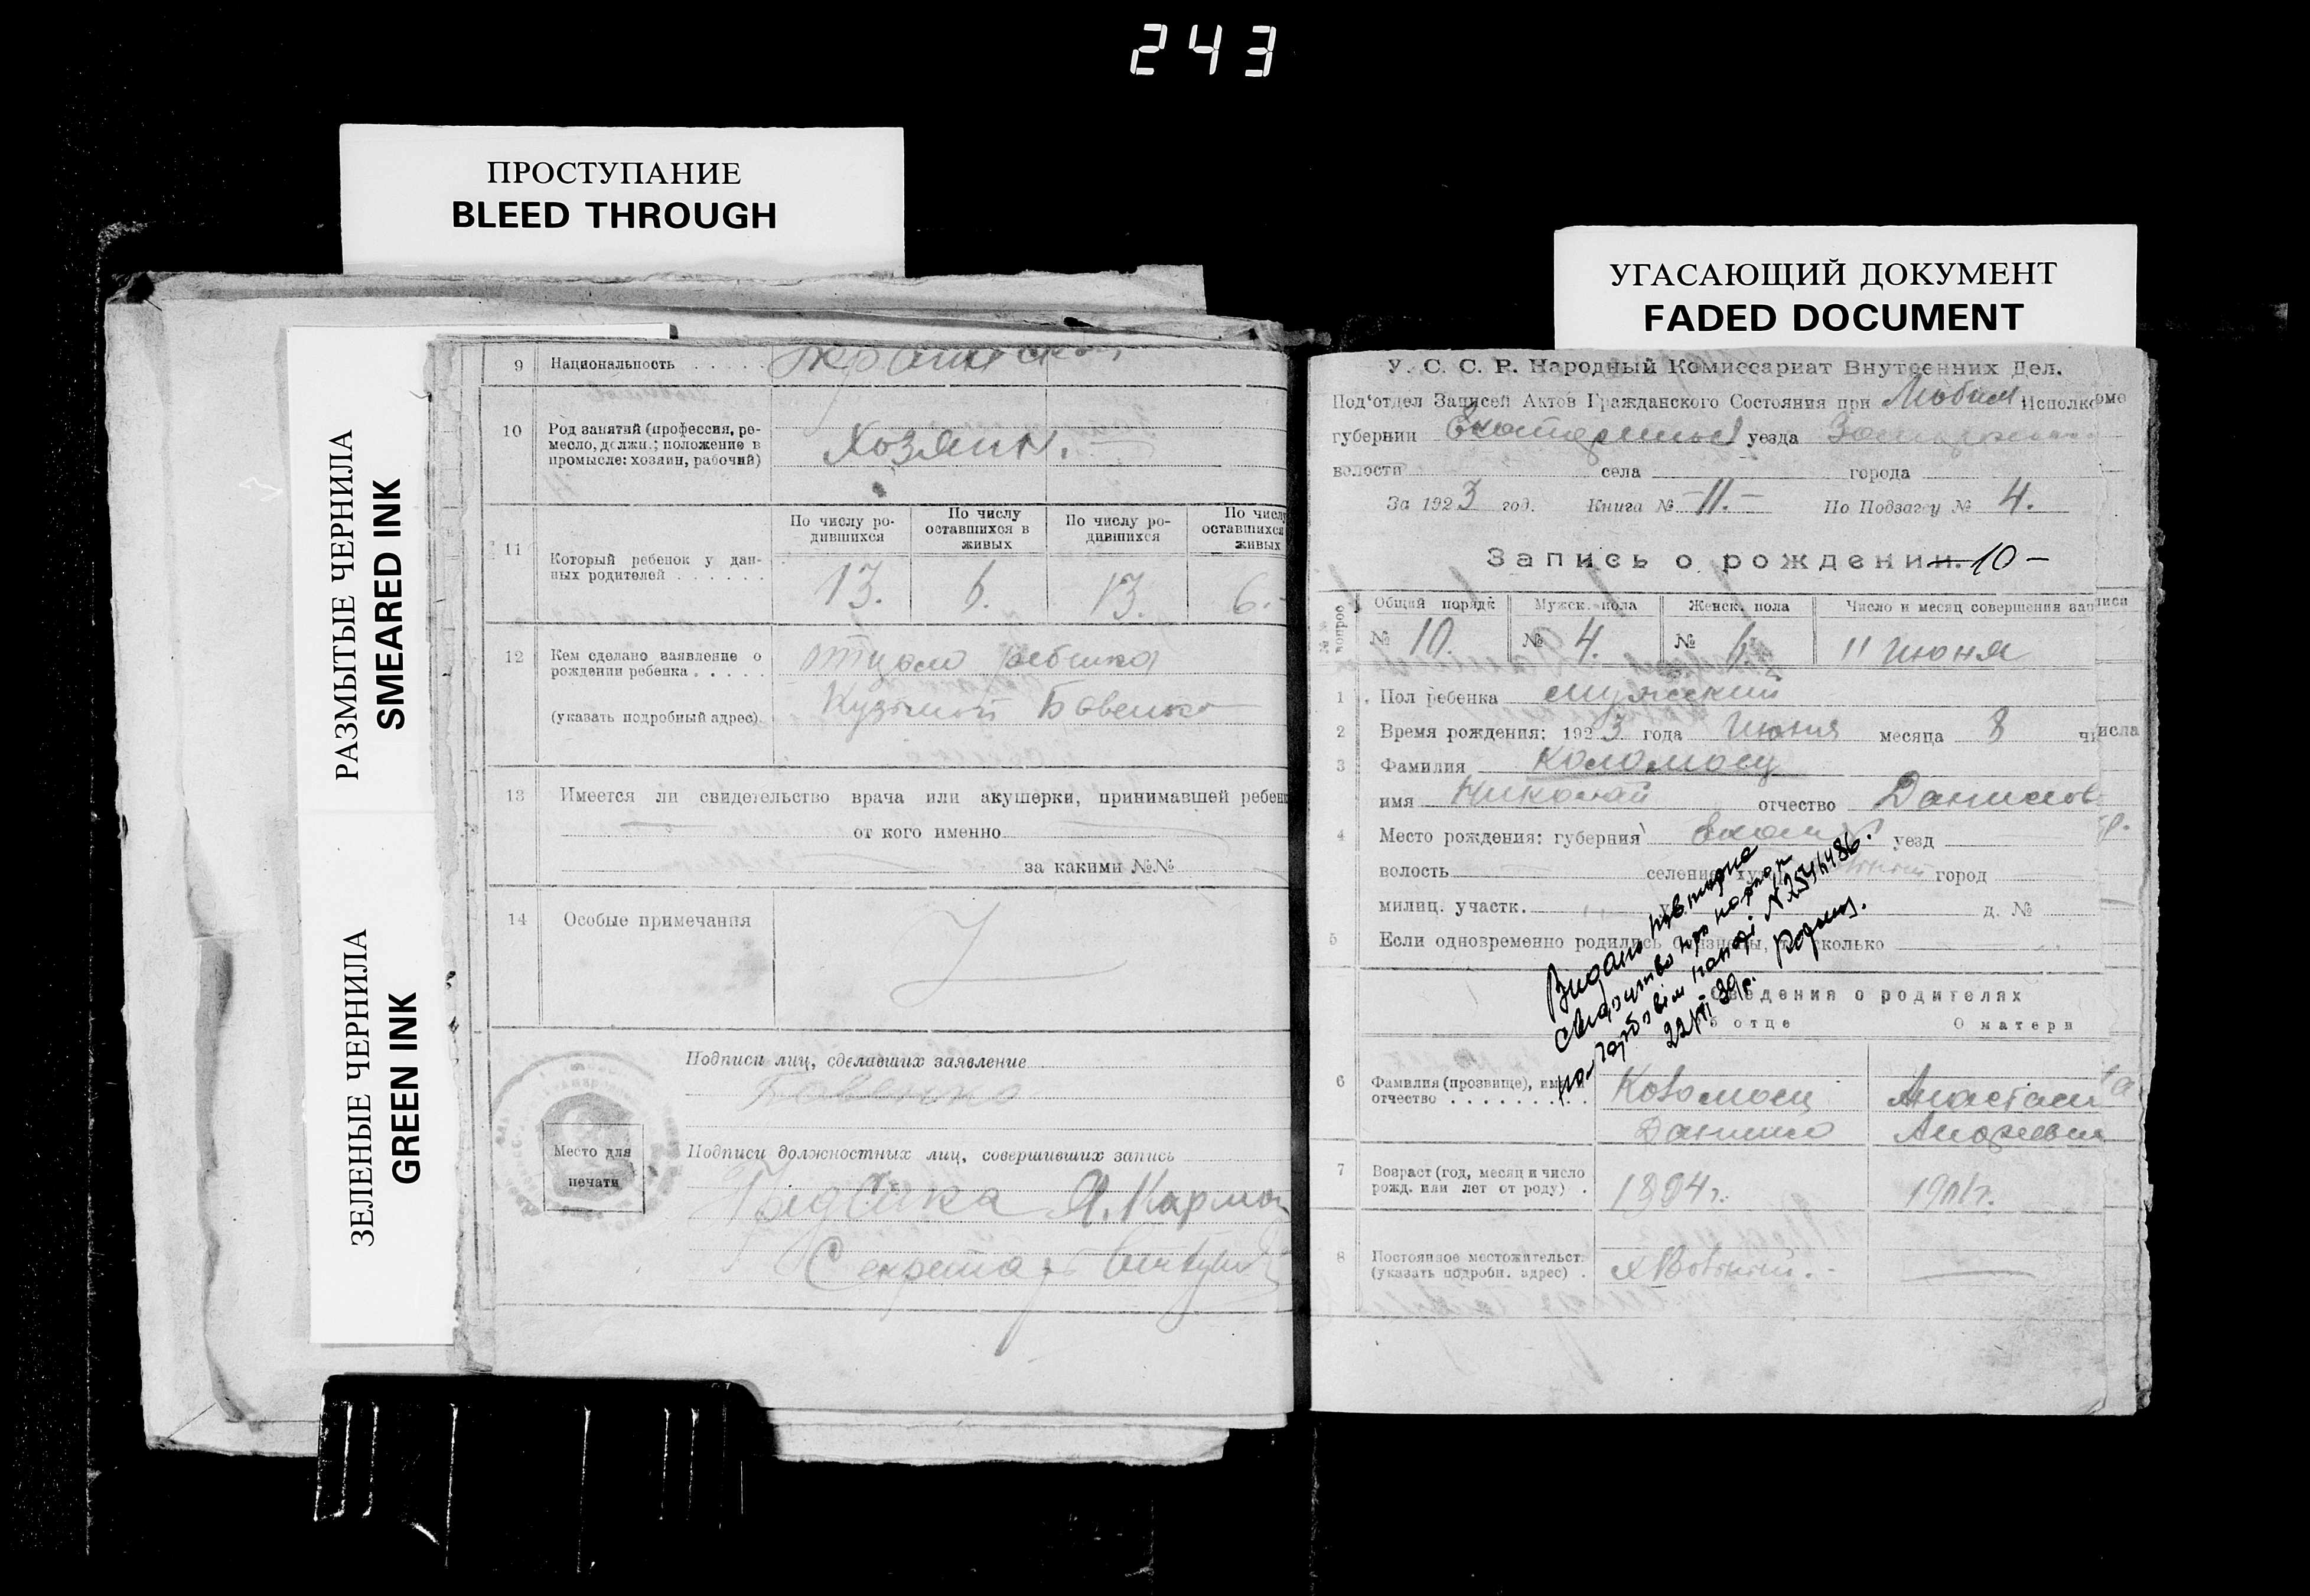 243
ПРОСТУПАНИЕ
BLEED THROUGH
УГАСАЮЩИЙ ДОКУМЕНТ
FADED DOCUMENT
РАЗМЫТЫЕ ЧЕРНИЛА
SMEARED INK
ЗЕЛЕНЫЕ ЧЕРНИЛА
GREEN INK
9 Национальность
10 Род занятий (профессия, ре-
месло, должн.; положение в
промысле: хозяин, рабочий)
Хозяин.
11 Который ребенок у дан-
ных родителей
По числу ро-
дившихся
По числу
оставшихся в
живых
По числу ро-
дившихся
По числу
оставшихся
живых
13. 6. 13. 6.-
12 Кем сделано заявление о
рождении ребенка
(указать подробный адрес)
отцом ребенка
Кузьмой Бовенко
13 Имеется ли свидетельство врача или акушерки, принимавшей ребен
от кого именно
за какими №№
14 Особые примечания
Подписи лиц, сделавших заявление
Бовенко
Место для
печати
Подписи должностных лиц, совершивших запись
Секретарь
У. С. С. Р. Народный Комиссариат Внутренних Дел.
Под'отдел Записей Актов Гражданского Состояния при Любим Исполкоме
губернии Екатеринос уезда
волости села города
За 1923 год. Книга № -11.- По Подзагсу № 4.
Запись о рождении. 10-
№№ вопрос
Общий порядк Мужск. пола Женск. пола Число и месяц совершения записи
№ 10. № 4. № 6. 11 июня
1 Пол ребенка мужеский
2 Время рождения: 1923 года Июня месяца 8 числа
3 Фамилия Коломоец
имя Николай отчество Данилов
4 Место рождения: губерния Екат уезд
волость селение, хут город
милиц. участк. д. №
5 Если одновременно родились близнецы, то сколько
Видано повторне
22/VI 39 р.
Сведения о родителях
О отце О матери
6 Фамилия (прозвище), имя и
отчество
Коломоец
Данило
Анастасия
Андреевна
7 Возраст (год, месяц и число
рожд. или лет от роду)
1894г. 1901г.
8 Постоянное местожительст.
(указать подробн. адрес)
х Вольный.-